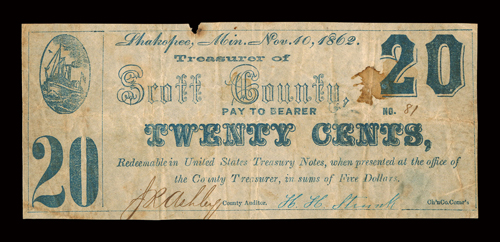 Shakopee, Min. Nov. 10, 1862.
Treasurer of
20
Scott County,
PAY TO BEARER
NO. 81
TWENTY CENTS,
20
Redeemable in United States Treasury Notes, when presented at the office of
the County Treasurer, in sums of Five Dollars.
J R Ashley County Auditor. H. H. Ch'n Co. Com'rs.